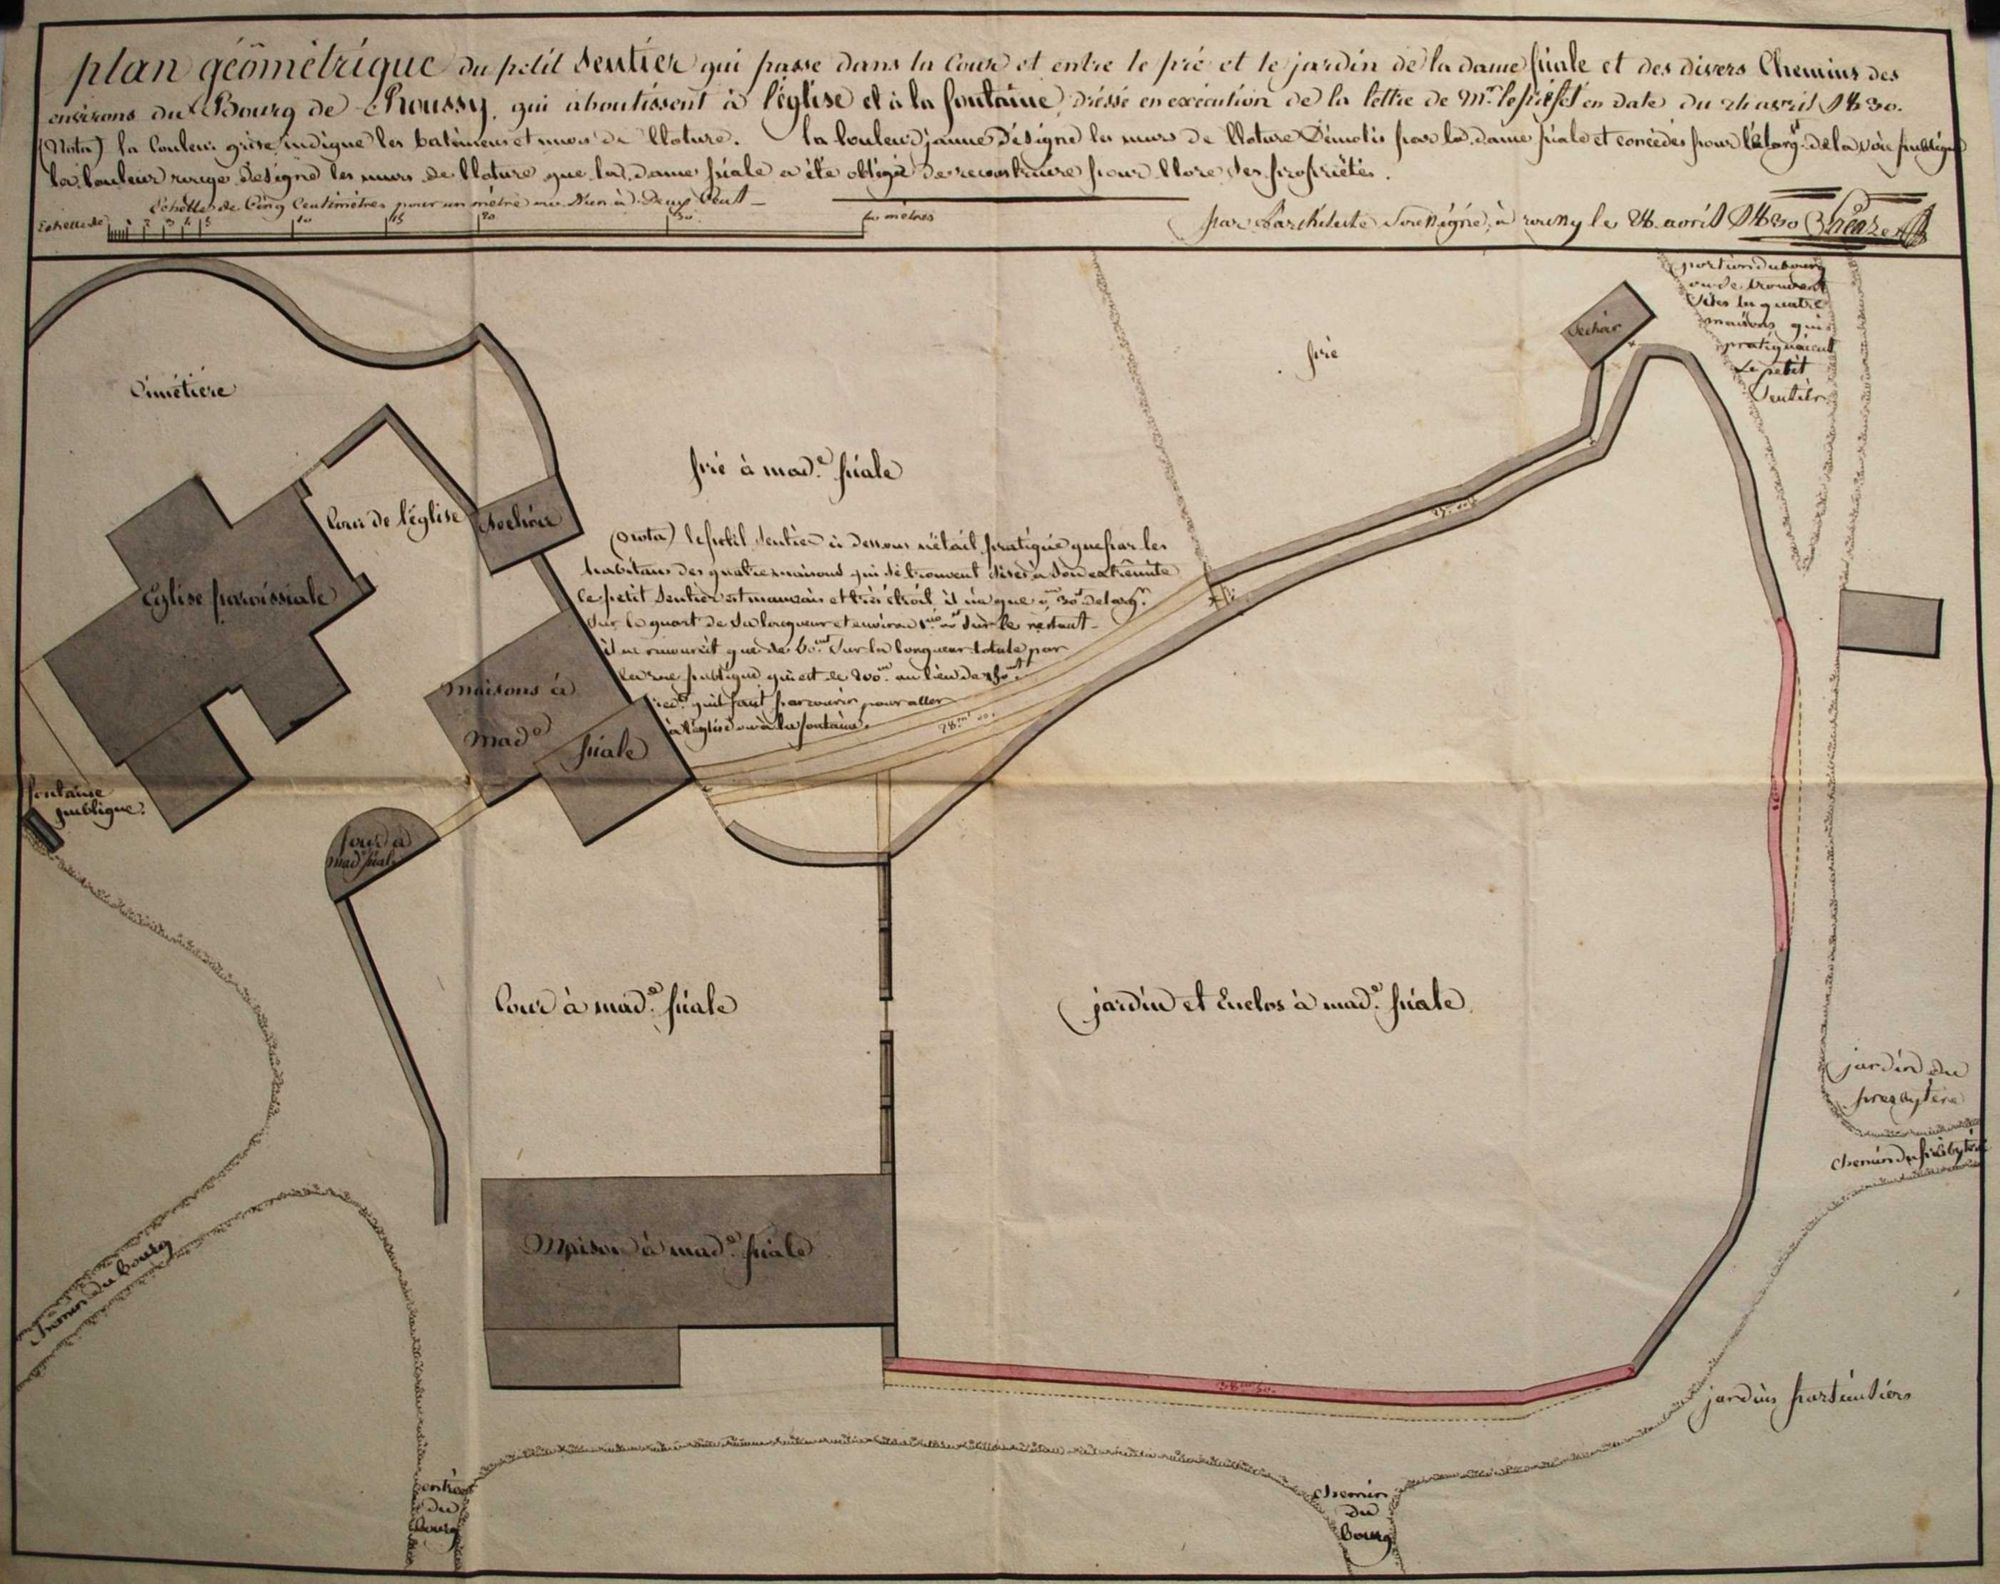 plan géométrique du petit Sentier qui passe dans la Cour et entre le pré et le jardin de la dame fiale et des divers Chemins des
environs du Bourg de Roussy, qui aboutissent à l'église et à la fontaine, dréssé en exécution de la lettre de Mr. le préfet en date du 21 avril 1830.
(Nota) la Couleur grise indique les batimens et murs de Cloture. la Couleur jaune désigne les murs de Cloture Démolis par la dame fiale et concédés pour l'élargt. de la voie publique
la Couleur rouge désigne les murs de Cloture que la dame fiale a été obligé de reconstruire pour Clore ses propriétés.
Echelle de Cinq Centimètres pour un mètre ou d'un à Deux Cent
Echelle de 1 2 3 4 5 10 15 20 30 mètres
par l'architecte Soussigné, à roussy le 28 avril 1830
portion du bourg
ou se trouvent
sites les quatre
maisons qui
pratiquaient
Le petit
Sentier
Sechoir
pré
Cimétière
pré à made. fiale
Cour de l'église
Sechoir
Eglise paroissiale
(Nota) le petit Sentier ci dessous n'était pratiqué que par les
habitans des quatre maisons qui se trouvent sises à son extrémité
Ce petit Sentier est mauvais et très étroit, il n'a que 30 de largr.
Sur le quart de sa longueur et environ sur le restant
il ne racourcit que de 60 m sur la longueur totale par
la rue publique qui est de 200 m au lieu de
qu'il faut parcourir pour aller
à l'église ou à la fontaine
Maisons à
Made fiale
fontaine
publique
four à
made fiale
78 m
Cour à made. fiale
jardin et Enclos à made. fiale
jardin du
presbytère
Chemin du presbytère
Maison à made. fiale
Chemin du bourg
jardins particuliers
entrée
du
bourg
chemin
du
bourg